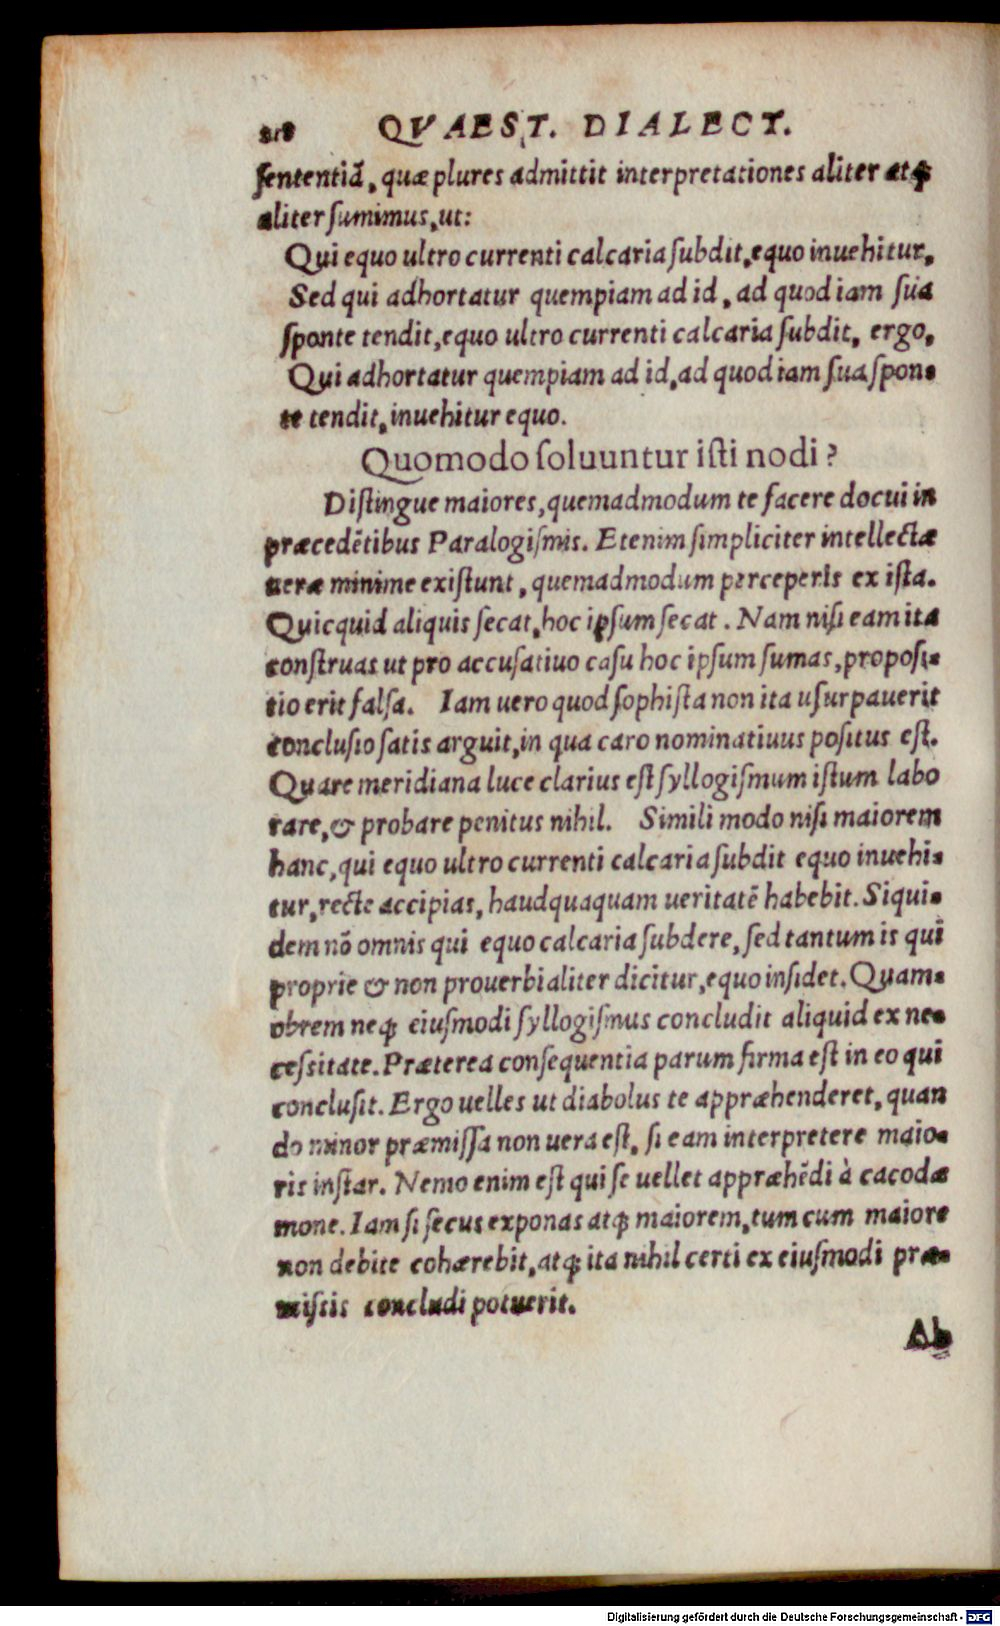 218 QVAEST. DIALECT.
sententiā, quæ plures admittit interpretationes aliter atq;
aliter sumimus, ut:
Qui equo ultro currenti calcaria subdit, equo inuehitur,
Sed qui adhortatur quempiam ad id, ad quod iam sua
sponte tendit, equo ultro currenti calcaria subdit, ergo,
Qui adhortatur quempiam ad id, ad quod iam sua spon-
te tendit, inuehitur equo.
Quomodo soluuntur isti nodi?
Distingue maiores, quemadmodum te facere docui in
præcedētibus Paralogismis. Etenim simpliciter intellectæ
ueræ minime existunt, quemadmodum perceperis ex ista.
Quicquid aliquis secat, hoc ipsum secat. Nam nisi eam ita
construas ut pro accusatiuo casu hoc ipsum sumas, proposi-
tio erit falsa. Iam uero quod sophista non ita usurpauerit
conclusio satis arguit, in qua caro nominatiuus positus est.
Quare meridiana luce clarius est syllogismum istum labo
rare, & probare penitus nihil. Simili modo nisi maiorem
hanc, qui equo ultro currenti calcaria subdit equo inuehi-
tur, recte accipias, haudquaquam ueritatē habebit. Siqui-
dem nō omnis qui equo calcaria subdere, sed tantum is qui
proprie & non prouerbialiter dicitur, equo insidet. Quam-
obrem neq; eiusmodi syllogismus concludit aliquid ex ne-
cessitate. Præterea consequentia parum firma est in eo qui
conclusit. Ergo uelles ut diabolus te appræhenderet, quan
do minor præmissa non uera est, si eam interpretere maio-
ris instar. Nemo enim est qui se uellet appræhēdi à cacodæ
mone. Iam si secus exponas atq; maiorem, tum cum maiore
non debite cohærebit, atq; ita nihil certi ex eiusmodi præ-
missis concludi potuerit.
Ab
Digitalisierung gefördert durch die Deutsche Forschungsgemeinschaft - DFG